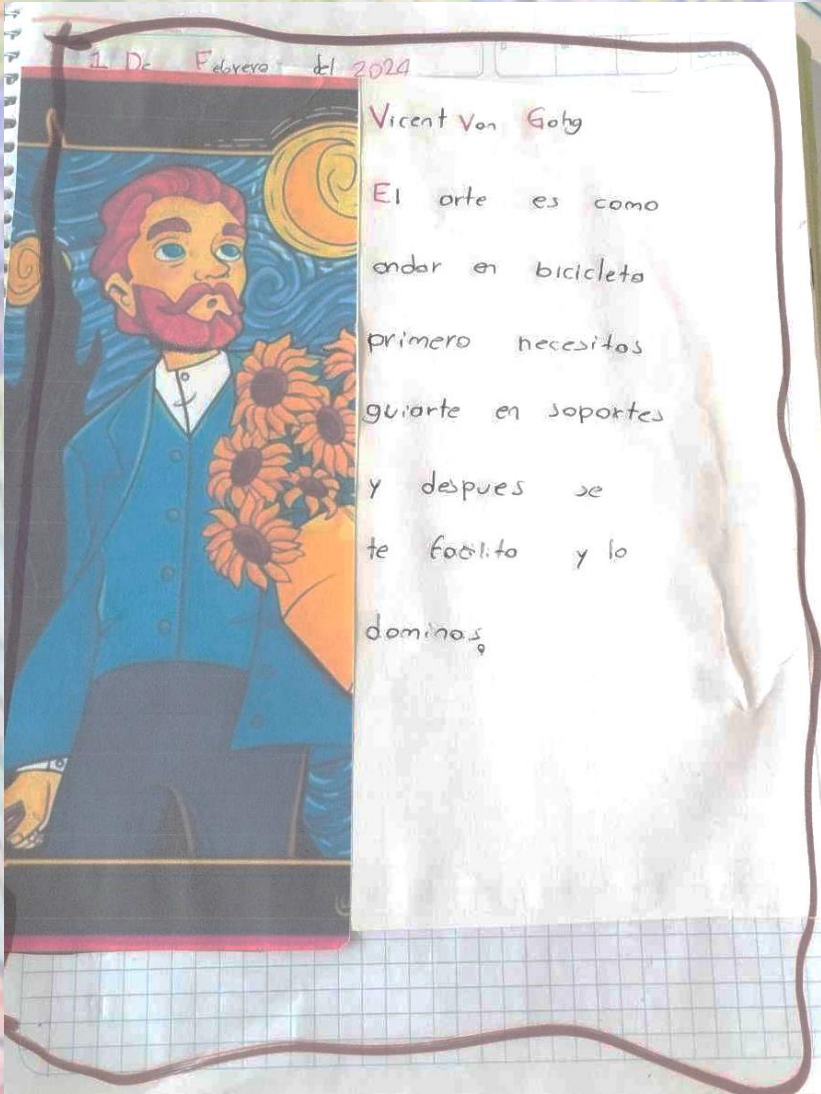 1 De Febrero del 2024
Vicent Van Gohg
El arte es como
andar en bicicleta
primero necesitas
guiarte en soportes
y despues se
te facilita y lo
dominas.